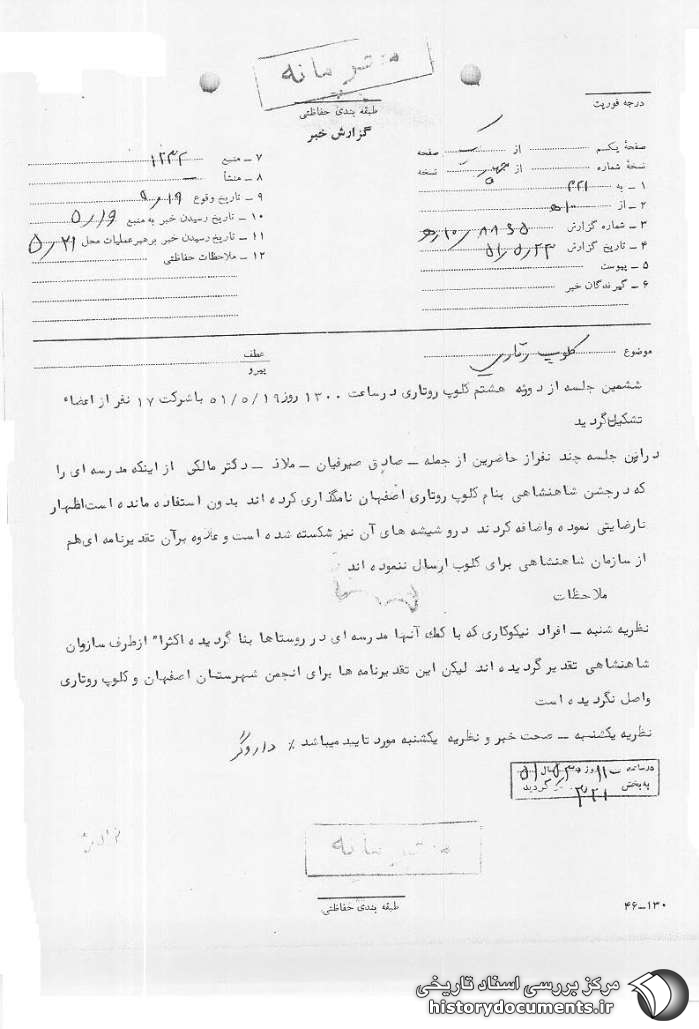 محرمانه
طبقه بندی حفاظتی
گزارش خبر
درجه فوریت
صفحهٔ یکم از صفحه
نسخهٔ شماره از نسخه
۱ ـ به ۳۲۱
۲ ـ از ۱۰ه
۳ ـ شماره گزارش ۸۸۳۵/۱۰ه
۴ ـ تاریخ گزارش ۵۱/۵/۲۳
۵ ـ پیوست
۶ ـ گیرندگان خبر
۷ ـ منبع ۱۲۳۲
۸ ـ منشأ ـ
۹ ـ تاریخ وقوع ۵/۱۹
۱۰ ـ تاریخ رسیدن خبر به منبع ۵/۱۹
۱۱ ـ تاریخ رسیدن خبر برهبر عملیات محل ۵/۲۱
۱۲ ـ ملاحظات حفاظتی
موضوع کلوپ رتاری
عطف
پیرو
ششمین جلسه از دوره هشتم کلوپ روتاری درساعت ۱۳۰۰ روز ۵۱/۵/۱۹ باشرکت ۱۷ نفر از اعضاء
تشکیل گردید
دراین جلسه چند نفراز حاضرین از جمله ـ صادق صیرفیان ـ ملاذ ـ دکتر مالکی از اینکه مدرسه ای را
که درجشن شاهنشاهی بنام کلوپ روتاری اصفهان نامگذاری کرده اند بدون استفاده مانده است اظهار
نارضایتی نموده واضافه کردند درو شیشه های آن نیز شکسته شده است و علاوه برآن تقدیرنامه ای هم
از سازمان شاهنشاهی برای کلوپ ارسال ننموده اند
ملاحظات
نظریه شنبه ـ افراد نیکوکاری که با کمك آنها مدرسه ای در روستاها بنا گردیده اکثرا" ازطرف سازمان
شاهنشاهی تقدیر گردیده اند لیکن این تقدیرنامه ها برای انجمن شهرستان اصفهان و کلوپ روتاری
واصل نگردیده است
نظریه یکشنبه ـ صحت خبر و نظریه یکشنبه مورد تایید میباشد ٪ داروگر
درساعت ۱۱ روز سال ۵۱
به بخش ۳۲۱ گردید
محرمانه
طبقه بندی حفاظتی
۴۶-۱۳۰
مرکز بررسی اسناد تاریخی
historydocuments.ir